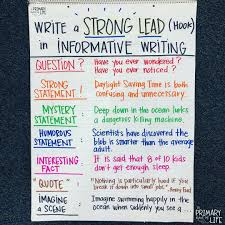 WRITE a STRONG LEAD (Hook)
in INFORMATIVE WRITING
QUESTION? : Have you ever wondered?
Have you ever noticed?
STRONG STATEMENT! : Daylight Saving Time is both
confusing and unnecessary.
MYSTERY STATEMENT : Deep down in the ocean lurks
a dangerous killing machine.
HUMOROUS STATEMENT : Scientists have discovered the
blob is smarter than the average
adult.
INTERESTING FACT : It is said that 8 of 10 kids
don't get enough sleep.
"QUOTE" : "Nothing is particularly hard if you
break it down into small jobs." -Henry Ford
IMAGINE a SCENE : Imagine swimming happily in
the ocean when suddenly you see a...
PRIMARY
LIFE